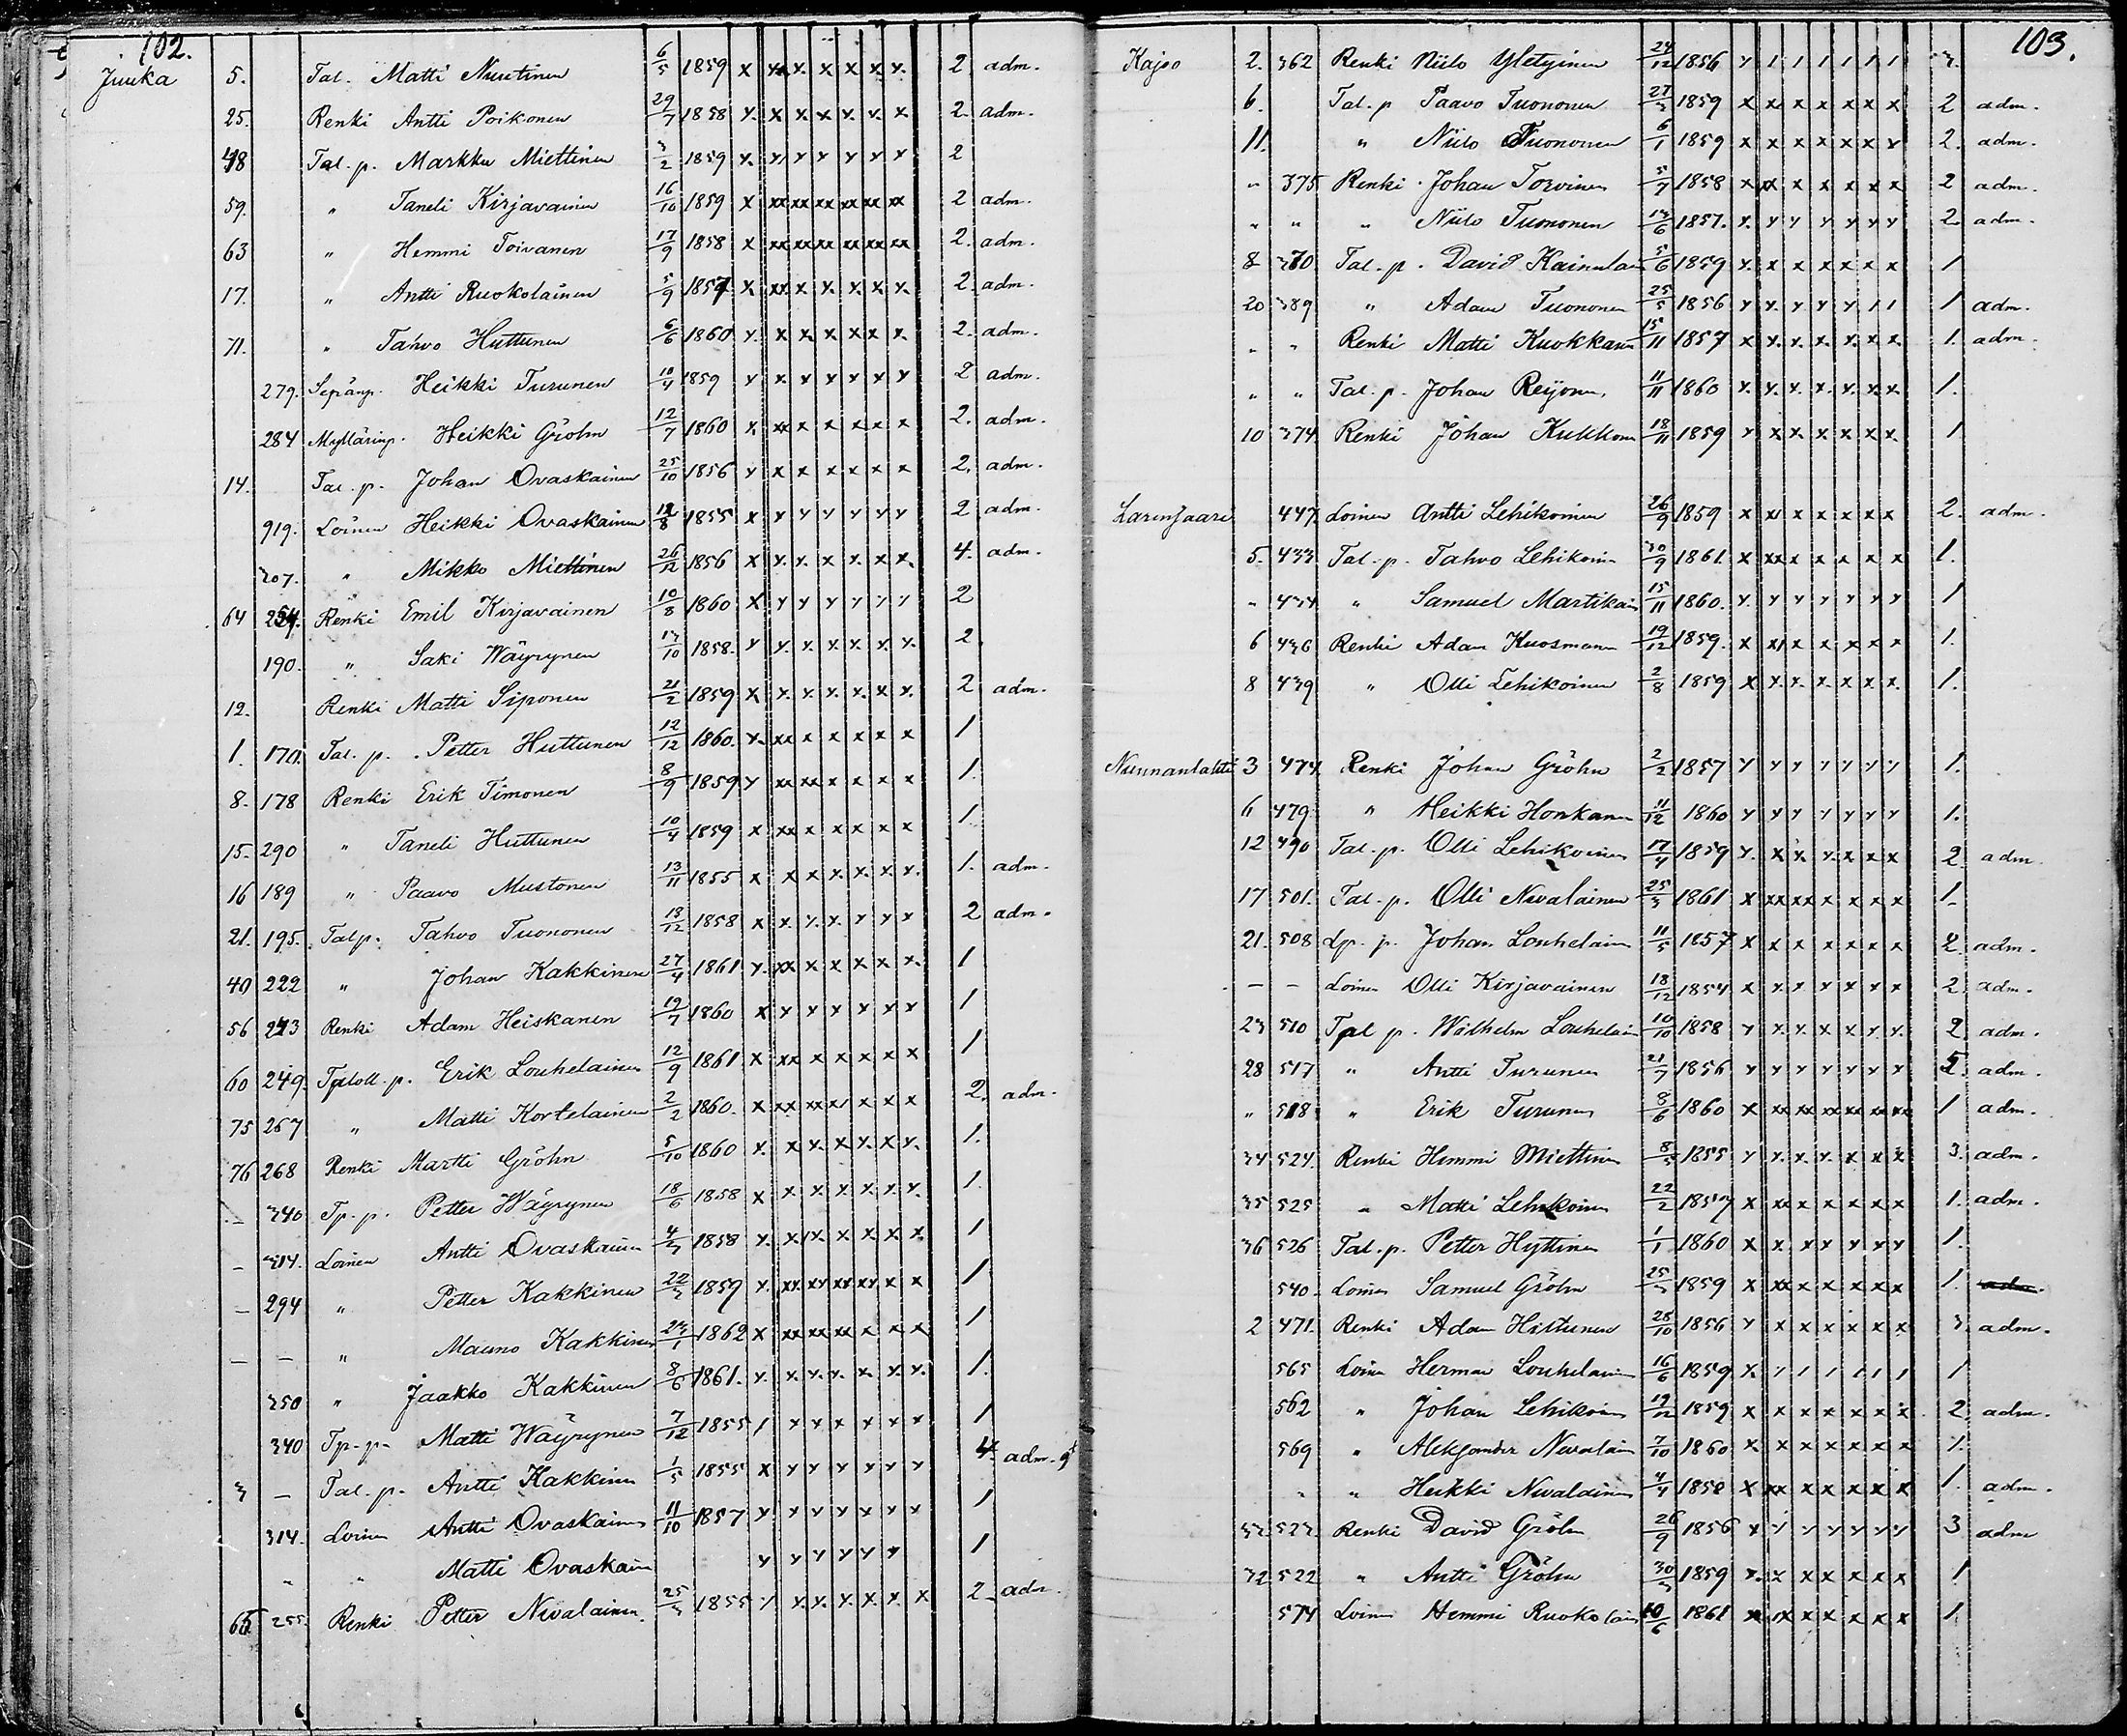 102.
Juuka 5. Tal. Matti Nuutinen 6/5 1859 x x x. x x x x. 2 adm.
25. Renki Antti Poikonen 29/7 1858 x. x x. x x. x. x 2. adm.
48 Tal. p. Markku Miettinen 3/2 1859 x. x x x x x x 2
59. " Taneli Kirjavainen 16/10 1859 x xx xx xx xx xx xx 2 adm.
63 " Hemmi Toivanen 17/9 1858 x xx xx xx xx xx xx 2. adm.
17. " Antti Ruokolainen 5/9 1857 x. xx x x. x. x. x. 2. adm.
71. " Tahvo Huttunen 6/6 1860 x. x x x x x x. 2. adm.
279. Sepänp. Heikki Turunen 10/4 1859 x x x x x x x 2 adm.
284 Myllärinp. Heikki Gröhn 12/7 1860 x. xx x x x x x 2. adm.
14. Tal. p. Johan Ovaskainen 25/10 1856 x x x x x x x 2. adm.
919. Loinen Heikki Ovaskainen 12/8 1855 x x x x x x x 2 adm.
307. " Mikko Miettinen 26/12 1856 x x. x. x x. x x. 4. adm.
64 254. Renki Emil Kirjavainen 10/8 1860 x x x x x x x 2
190. " Saki Wäyrynen 13/10 1858. x x. x. x. x. x. x. 2.
12. Renki Matti Siponen 21/2 1859 x x. x. x. x. x x. 2 adm.
1. 170. Tal. p. Petter Huttunen 12/12 1860. x. xx x x x x x 1
8. 178 Renki Erik Timonen 8/9 1859 x xx xx x x x x 1.
15. 290 " Taneli Huttunen 10/4 1859 x xx x x x x x 1.
16 189 " Paavo Mustonen 13/11 1855 x x x x. x. x. x. 1. adm.
21. 195. Talp. Tahvo Tuononen 13/12 1858 x x. x. x. x x x 2 adm.
40 222 " Johan Kakkinen 27/4 1861 x. xx x x x x x. 1
56 243 Renki Adam Heiskanen 19/7 1860 x x x x x x x 1
60 249. Erik Louhelainen 12/9 1861 x xx x x x x x 1
75 267 " Matti Kortelainen 2/2 1860. x xx xx x x x x 2. adm.
76 268 Renki Martti Gröhn 5/10 1860 x. x x. x x. x x. 1.
- 340 Tp. p. Petter Wäyrynen 18/6 1858 x x x. x. x. x. x. 1.
- 314. Loinen Antti Ovaskainen 4/3 1858 x. x x x x x x. 1
- 294 " Petter Kakkinen 22/3 1859 x. xx. xx xx xx x x 1
- - " Mauno Kakkinen 23/1 1862 x xx xx xx x x x 1
350 " Jaakko Kakkinen 8/6 1861. x. x. x. x. x. x. x. 1.
340 Tp. p. Matti Wäyrynen 7/12 1855 / x x x x x x 1
3 - Tal. p. Antti Kakkinen 1/5 1855 x x x x x x x 4. adm.
314. Loinen Antti Ovaskainen 11/10 1857 x. x x x x x x 1
" " Matti Ovaskain x x x x x x 1
65 255. Renki Petter Nevalainen. 25/3 1855 / x. x. x. x. x. x 2. adm.
103.
Kajoo 2. 362 Renki Niilo Yletyinen 24/12 1856 x / / / / / / 3.
6. Tal. p Paavo Tuononen 27/3 1859 x x x x x x x 2 adm.
11. " Niilo Tuononen 6/1 1859 x x x x x x x 2. adm.
" 375 Renki Johan Torvinen 5/7 1858 x xx x x x x x 2 adm.
" " " Niilo Tuononen 13/6 1857. x. x x x x x x 2. adm.
8 370 Tal. p. David Kainulain 5/6 1859 x. x x x x x x 1
20 389 " Adam Tuononen 25/5 1856 x x. x x x / / 1 adm.
" " Renki Matti Kuokkanen 15/11 1857 x x. x. x. x. x. x. 1. adm.
" " Tal. p. Johan Reijonen. 11/11 1860 x. x. x. x. x. x. x. 1.
10 374 Renki Johan Kukkonen 18/11 1859 x x x. x x x x. 1
Larinsaari 447. Loinen Antti Lehikoinen 26/9 1859 x xx x x x x x 2. adm.
5. 433 Tal. p. Tahvo Lehikoin 30/9 1861. x xx x x x x x 1.
" 434 " Samuel Martikain 15/11 1860. x. x x x x x x 1
6 436 Renki Adam Kuosmanen 19/12 1859. x xx x x x x x 1.
8 439 " Olli Lehikoinen 2/8 1859 x x. x. x. x x x. 1.
Nunnanlahti 3 474. Renki Johan Gröhn 2/2 1857 x x x x x x x 1.
6 479 " Heikki Honkanen 11/12 1860 x x x x x x x 1.
12 490 Tal. p. Olli Lehikoinen 17/4 1859 x. x x. x. x x x 2 adm.
17 501. Tal. p. Olli Nevalainen 25/3 1861 x xx xx x x x x 1.
21. 508 Lp. p. Johan Louhelain 11/5 1857 x x x x x x x 2. adm.
- - Loinen Olli Kirjavainen 18/12 1854 x x. x x x x x 2. adm.
23 510 Tal p. Wilhelm Louhelain 10/10 1858 x x. x. x x x. x. 2 adm.
28 517 " Antti Turunen 21/7 1856 x x x x x x x 5. adm.
" 518 " Erik Turunen 8/6 1860 x xx xx xx xx xx xx 1 adm.
34 524. Renki Hemmi Miettinen 8/5 1855 x x. x. x. x x x 3. adm.
35 525 " Matti Lehikoinen 22/2 1857 x xx x x x x x 1. adm.
36 526 Tal. p. Petter Hyttinen 1/1 1860 x x. x x x x x 1.
540. Loinen Samuel Gröhn 25/3 1859 x xx x x x x x 1. adm.
2 471. Renki Adam Huttunen 28/10 1856 x x x x x x x 3. adm.
565 Loinen Herman Louhelain 16/6 1859 x. / / / / / / 1
562 " Johan Lehikoinen 19/12 1859 x x x x x x x. 2. adm.
569 " Aleksander Nevalain 7/10 1860 x x x x x x x 1.
" " Heikki Nevalainen 4/4 1858 x xx x x x x x 1. adm.
33 523 Renki David Gröhn 26/9 1856 x x x x x x x 3 adm
32 522 " Antti Gröhn 30/3 1859 x. x x x x x x 1
574 Loinen Hemmi Ruokolain 10/6 1861 x x x x x x x 1.